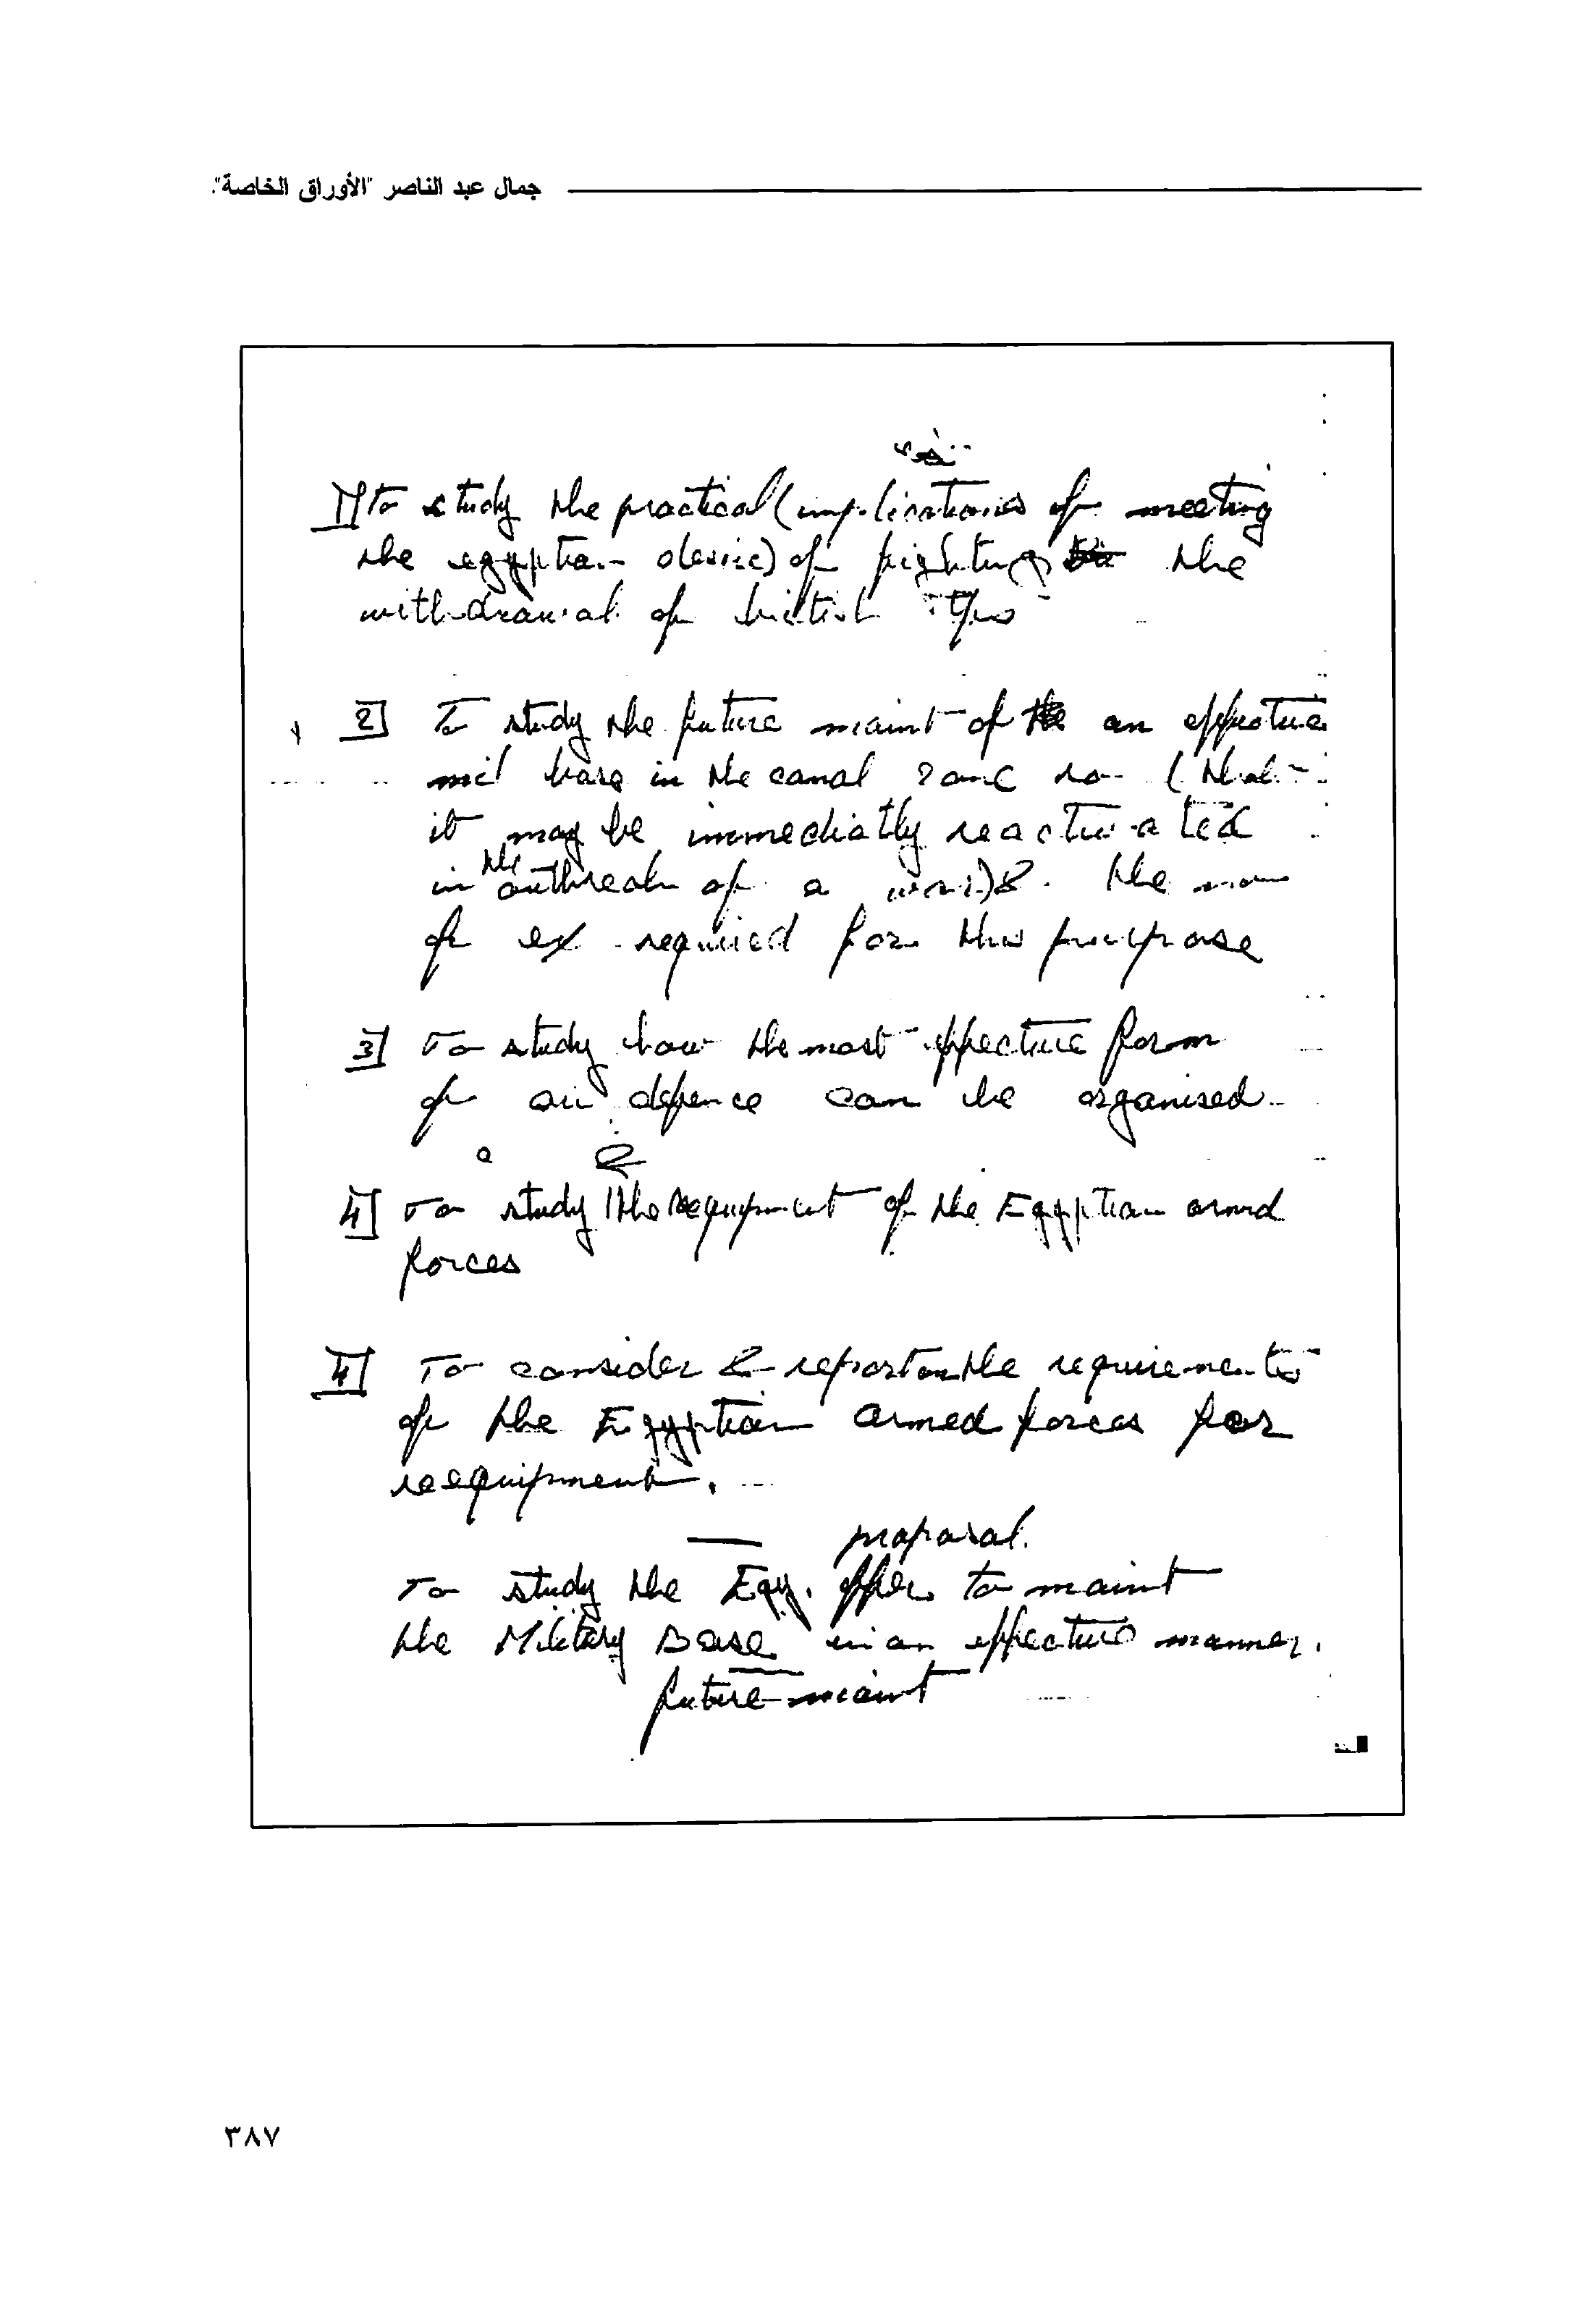 جمال عبد الناصر "الأوراق الخاصة".
1] to study the practical (implications of meeting
the egyptian desire) of the
withdrawal of british tps
2] To study the future maint of an effective
mil base in the canal zone so (that
it may be immediatly reactivated
in the outbreak of a war) & the
of ex required for this purpose
3] To study how the most effective form
of air defence can be organised
a &
4] To study the equipment of the Egyptian armd
forces
4] To consider & report on the requirements
of the Egyptian armed forces for
reequipment.
proposal.
To study the Egy. offer to maint
the Military Base in an effective manner.
future maint
٣٨٧